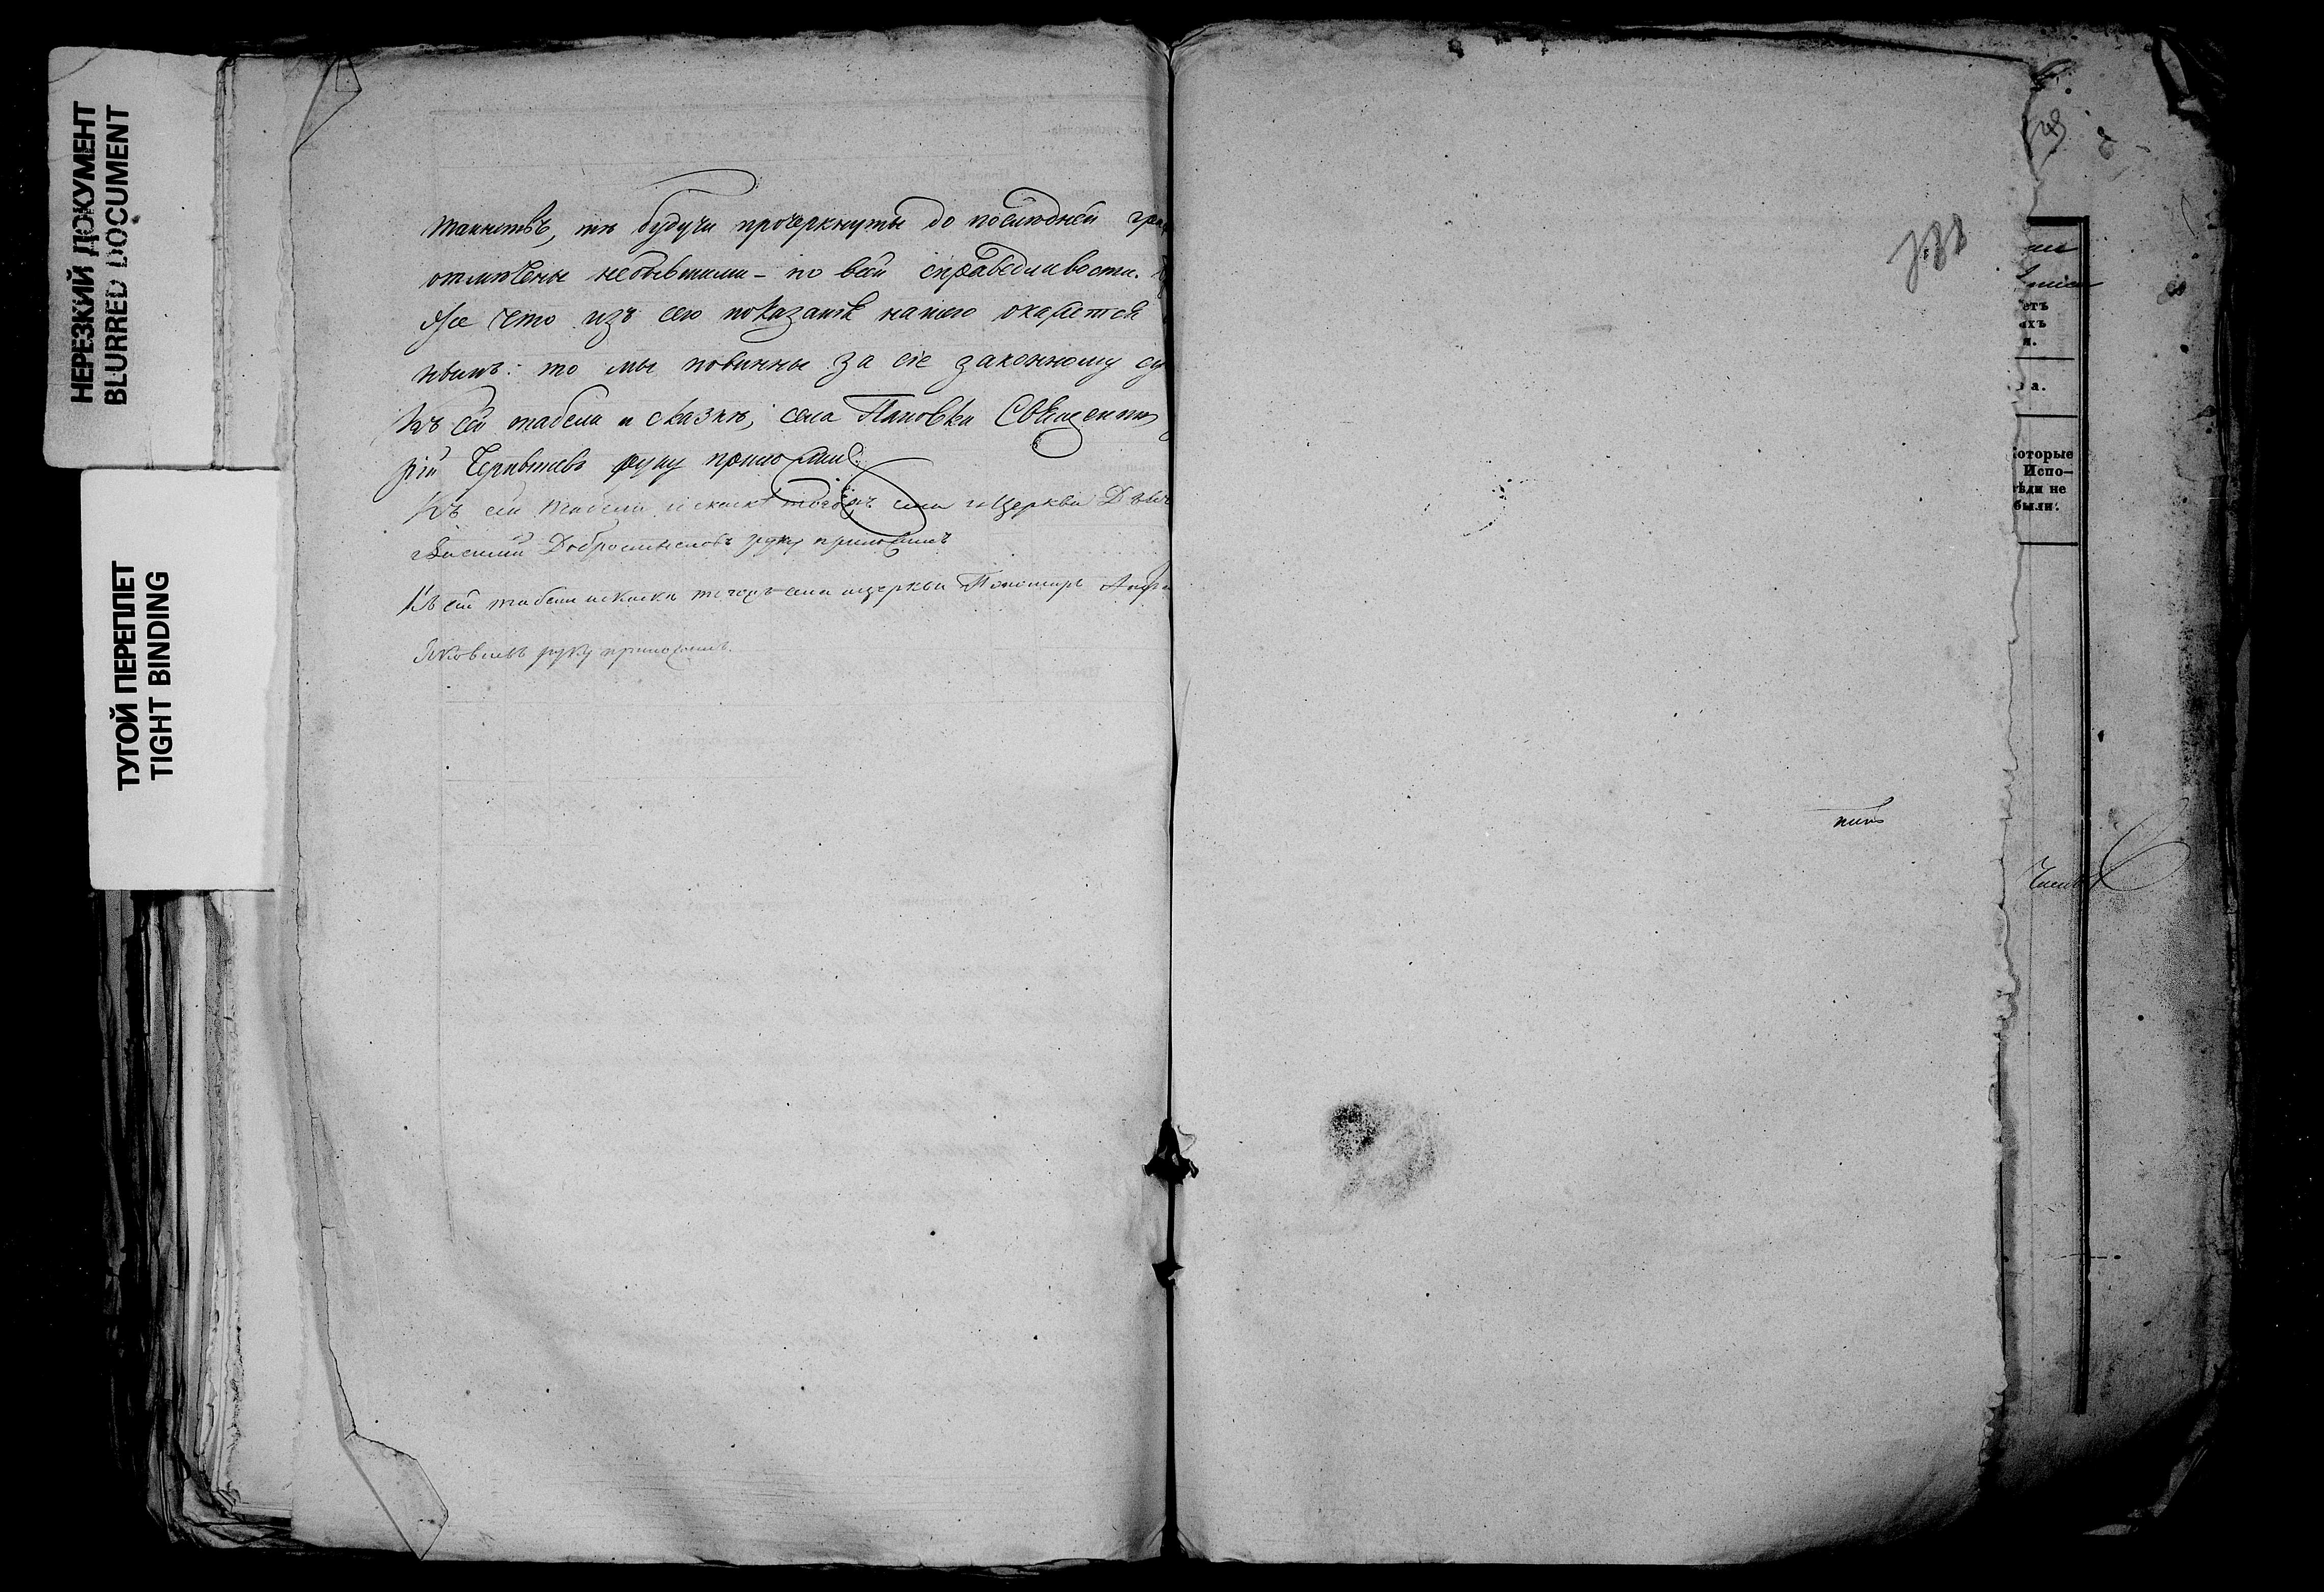 НЕРЕЗКИЙ ДОКУМЕНТ
BLURRED DOCUMENT
ТУГОЙ ПЕРЕПЛЕТ
TIGHT BINDING
таинствъ, тѣ будучи прочеркнуты до послѣдней гра
отмѣчены небывшими – по всей справедливости.
же что изъ сего показанія нашего окажется
нымъ: то мы повинны за сіе законному су
Къ сей табели и сказкѣ, села Пановки Священни
рій руку приложилъ
Къ сей табели и сказкѣ тогожъ села и церкви Дьяч
Василий Добросмысловъ руку приложилъ
Къ сей табели и сказкѣ тогожъ села и церкви Пономарь
Яковлевъ руку приложилъ.
етъ
ахъ
которые
Испо—
вѣди не
были.